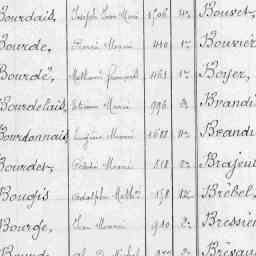 Bourdais, Joseph Jean Marie 1706 Bouvet,
Bourde, Pierre Marie 410 1e Bouvier
Bourdé, Mathurin François 463 1e Boyer,
Bourdelais, Etienne Marie 996 2e Brandi
Bourdonnais, Eugène Marie 1688 4e Brandi
Bourdet, Marie 818 2e Brajeul
Bougis Adolphe 158 12e Brébel,
Bourge, Jean Marie 910 2e Bressie